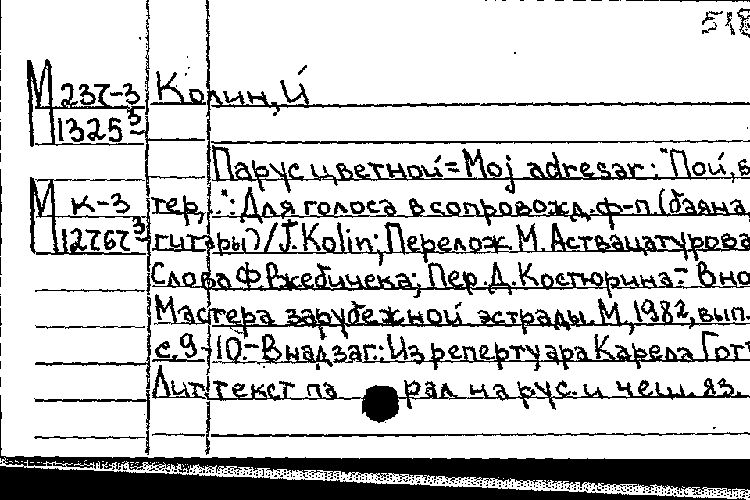 518
М 237-3 Колин, Й
П 1325³
Парус цветной = Moj adresar: "Пой, в
М к-3 тер,..": Для голоса в сопровожд. ф-п. (баяна,
П 12767³ гитары) / J. Kolin; Перелож. М. Аствацатурова
Слова Ф. Ржебичека; Пер. Д. Костюрина.- В но
Мастера зарубежной эстрады. М., 1982, вып.
с. 9-10.- В надзаг.: Из репертуара Карела Готт
Лит. текст па рал на рус. и чеш. яз.